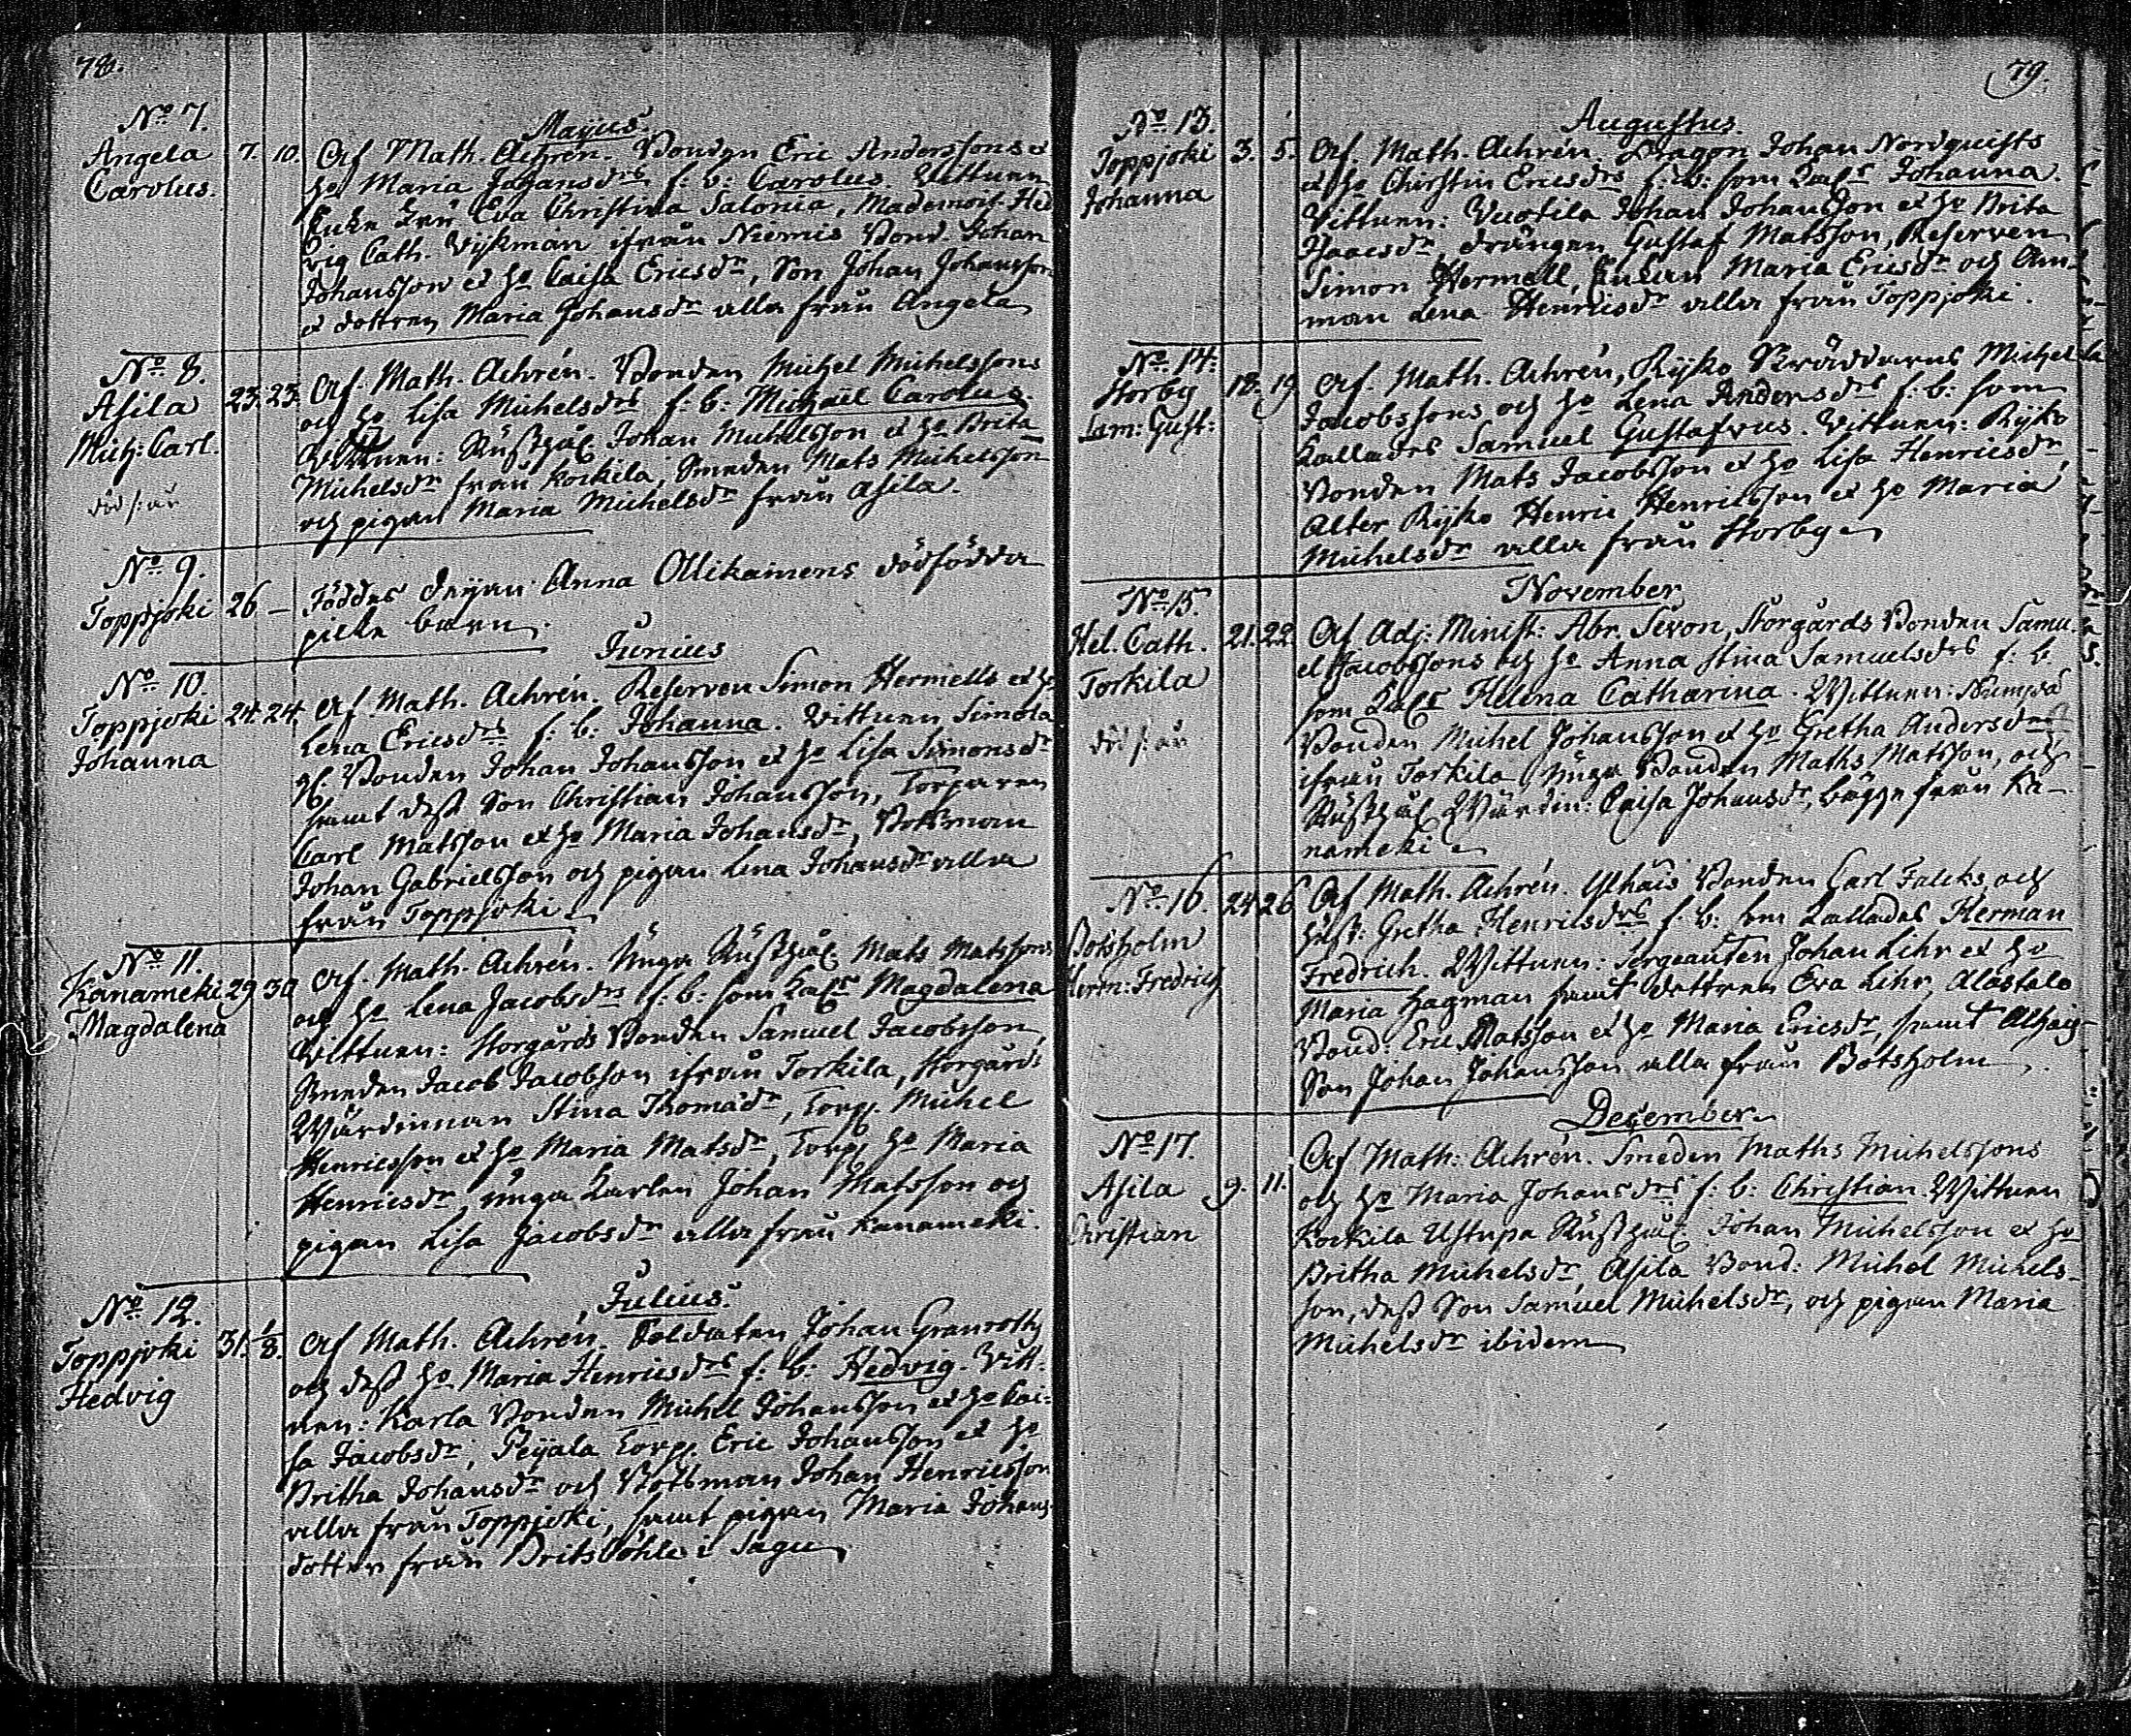 78.
Majus.
No 7.
Angela 7. 10. Af Math. Achrén. Bonden Eric Anderssons et
Carolus. ho Maria Johansdrs f: b: Carolus. Vittnen
Enke Fru Eva Christina Salonia, Mademois. Hed
vig Cath. Vijkman ifrån Niemis Bond. Johan
Johansson et ho Caisa Ericsdr, Son Johan Johansson
et dottren Maria Johansdr alla från Angela
No 8.
Asila 23. 23. Af. Math. Achrén. Bonden Michel Michelssons
Mich: Carl. och ho Lisa Michelsdrs f: b: Michaël Carolus.
Vittnen: Rusthål. Johan Michelsson et ho Brita
Michelsdr från Kockila, Smeden Mats Michelsson
död s: år och pigan Maria Michelsdr från Asila.
No 9.
Toppjoki 26 — Föddes Pigan Anna Ollikainens dödfödda
picke barn.
Junius
No 10.
Toppjoki 24. 24. Af. Math. Achrén. Reserven Simon Hermells et ho
Johanna Lena Ericsdrs f: b: Johanna. Vittnen, Simola
gl. Bonden Johan Johansson et ho Lisa Simonsdr
samt dess Son Christian Johansson, Torparen
Carl Matsson et ho Maria Johansdr, Båtsman
Johan Gabrielsson och pigan Lena Johansdr alla
från Toppjoki
No 11.
Kanameki 29 30 Af. Math. Achrén. Unga Rusthål. Mats Matssons
Magdalena och ho Lena Jacobsdrs f: b: som Kals Magdalena
Vittnen: Storgårds Bonden Samuel Jacobsson,
Smeden Jacob Jacobson ifrån Torkila, Storgårds
Wärdinnan Stina Thomædr, Torp. Michel
Henricsson et ho Maria Matsdr, Torp. ho Maria
Henricsdr, unga Karlen Johan Matsson och
pigan Lisa Jacobsdr alla från Kanameki.
Julius.
No 12.
Toppjoki 31. 1/8. Af Math. Achrén. Soldaten Johan Granroths
Hedvig och dess ho Maria Henricsdrs f: b: Hedvig. Vitt-
nen: Karla Bonden Michel Johansson et ho Cai-
sa Jacobsdr, Peijala Torp. Eric Johansson et ho
Britha Johansdr och Båtsman Johan Henricsson
alla från Toppjoki, samt pigan Maria Johans
dotter från Britsböhle i Sagu
79.
Augustus.
No 13.
Toppjoki 3. 5. Af. Math. Achrén. Dragon Johan Nordquists
Johanna et ho Chirstin Ericsdrs f: b: som Kals Johanna.
Vittnen: Vuotila Johan Johansson et ho Brita
Isacsdr drängen Gustaf Matsson, Reserven
Simon Hermell, Enkan Maria Ericsdr och Am-
man Lena Henricsdr alla från Toppjoki.
No 14:
Storby 18. 19. Af. Math. Achrén, Ryko Skräddarens Michel
Sam: Gust: Jacobssons och ho Lena Andersdrs f: b: som
Kallades Samuel Gustafvus. Vittnen: Rijko
Bonden Mats Jacobsson et ho Lisa Henricsdr
Alter Rijko Henric Henricsson et ho Maria
Michelsdr alla från Storby
November
No 15.
Hel. Cath. 21. 22. Af Adj: Minist: Abr. Sevon, Storgårds Bonden Samu-
Torkila el Jacobssons och ho Anna Stina Samuelsdrs f: b.
som Kals Helena Catharina. Vittnen: Numpä
död s: år Bonden Michel Johansson et ho Gretha Andersdr
ifrån Torkila, Unga Bonden Maths Matsson, och
Rusthål. Wärdin: Caisa Johansdr, bägge från Ka-
nameki
No 16. 24 26 Af Math. Achrén. Ylhäis Bonden Carl Falcks och
Botsholm hust: Gretha Henricsdrs f: b: som Kallades Herman
Herm: Fredrich Fredrich. Vittnen: Sergeanten Johan Lihr et ho
Maria Hagman samt dottren Eva Lihr, Alastalo
Bond: Eric Matsson et ho Maria Ericsdr, samt
Son Johan Johansson alla från Botsholm.
December
No 17.
Asila 9. 11. Af Math: Achrén. Smeden Maths Michelssons
Christian och ho Maria Johansdrs f: b: Christian. Vittnen
Kockila Ustupa Rusthål. Johan Michelsson et ho
Britha Michelsdr, Asila Bond: Michel Michels-
son, dess Son Samuel Michelsdr, och pigan Maria
Michelsdr ibidem